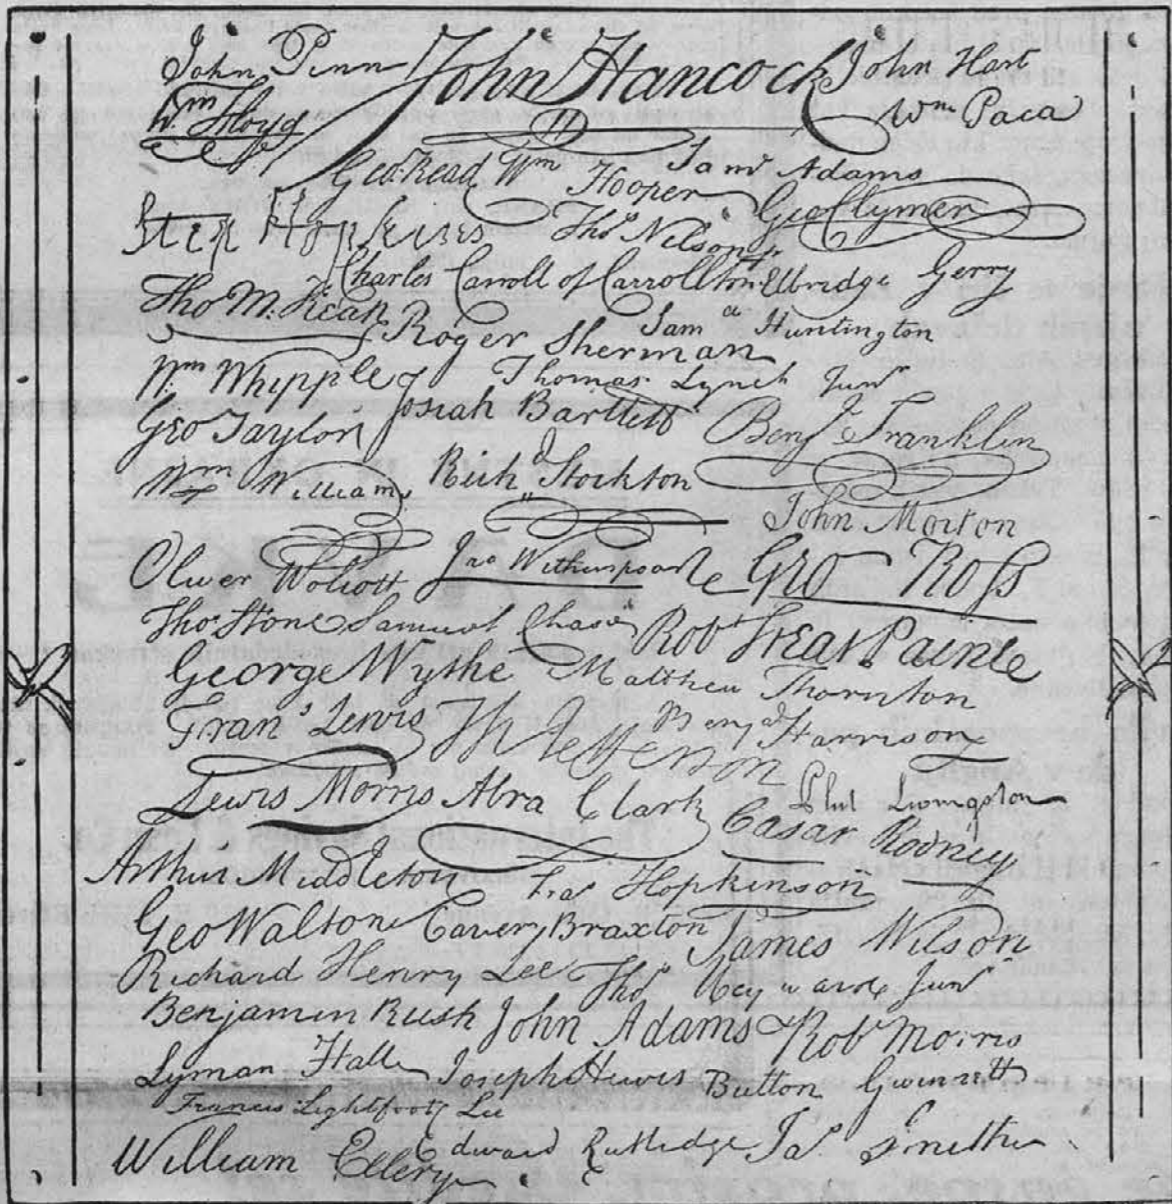 John Penn John Hancock John Hart
Wm Floyd Wm Paca
Geo. Read Wm Hooper Saml Adams
Step Hopkins Thos Nelson Geo Clymer
Charles Carroll of Carrollton Elbridge Gerry
Tho M. Kean Roger Sherman Saml Huntington
Wm Whipple Thomas Lynch Junr
Geo Taylor Josiah Bartlett Benj Franklin
Wm Williams Richd Stockton
John Morton
Oliver Wolcott Jno Witherspoon Geo Ross
Thos Stone Samuel Chase Robt Treat Paine
George Wythe Matthew Thornton
Frans Lewis Th Jefferson Benj Harrison
Lewis Morris Abra Clark Phil Livingston
Casar Rodney
Arthur Middleton Fras Hopkinson
Geo Walton Carter Braxton James Wilson
Richard Henry Lee Thos Heyward Junr
Benjamin Rush John Adams Robt Morris
Lyman Hall Joseph Hewes Button Gwinnett
Francis Lightfoot Lee
William Ellery Edward Rutledge Jas Smith